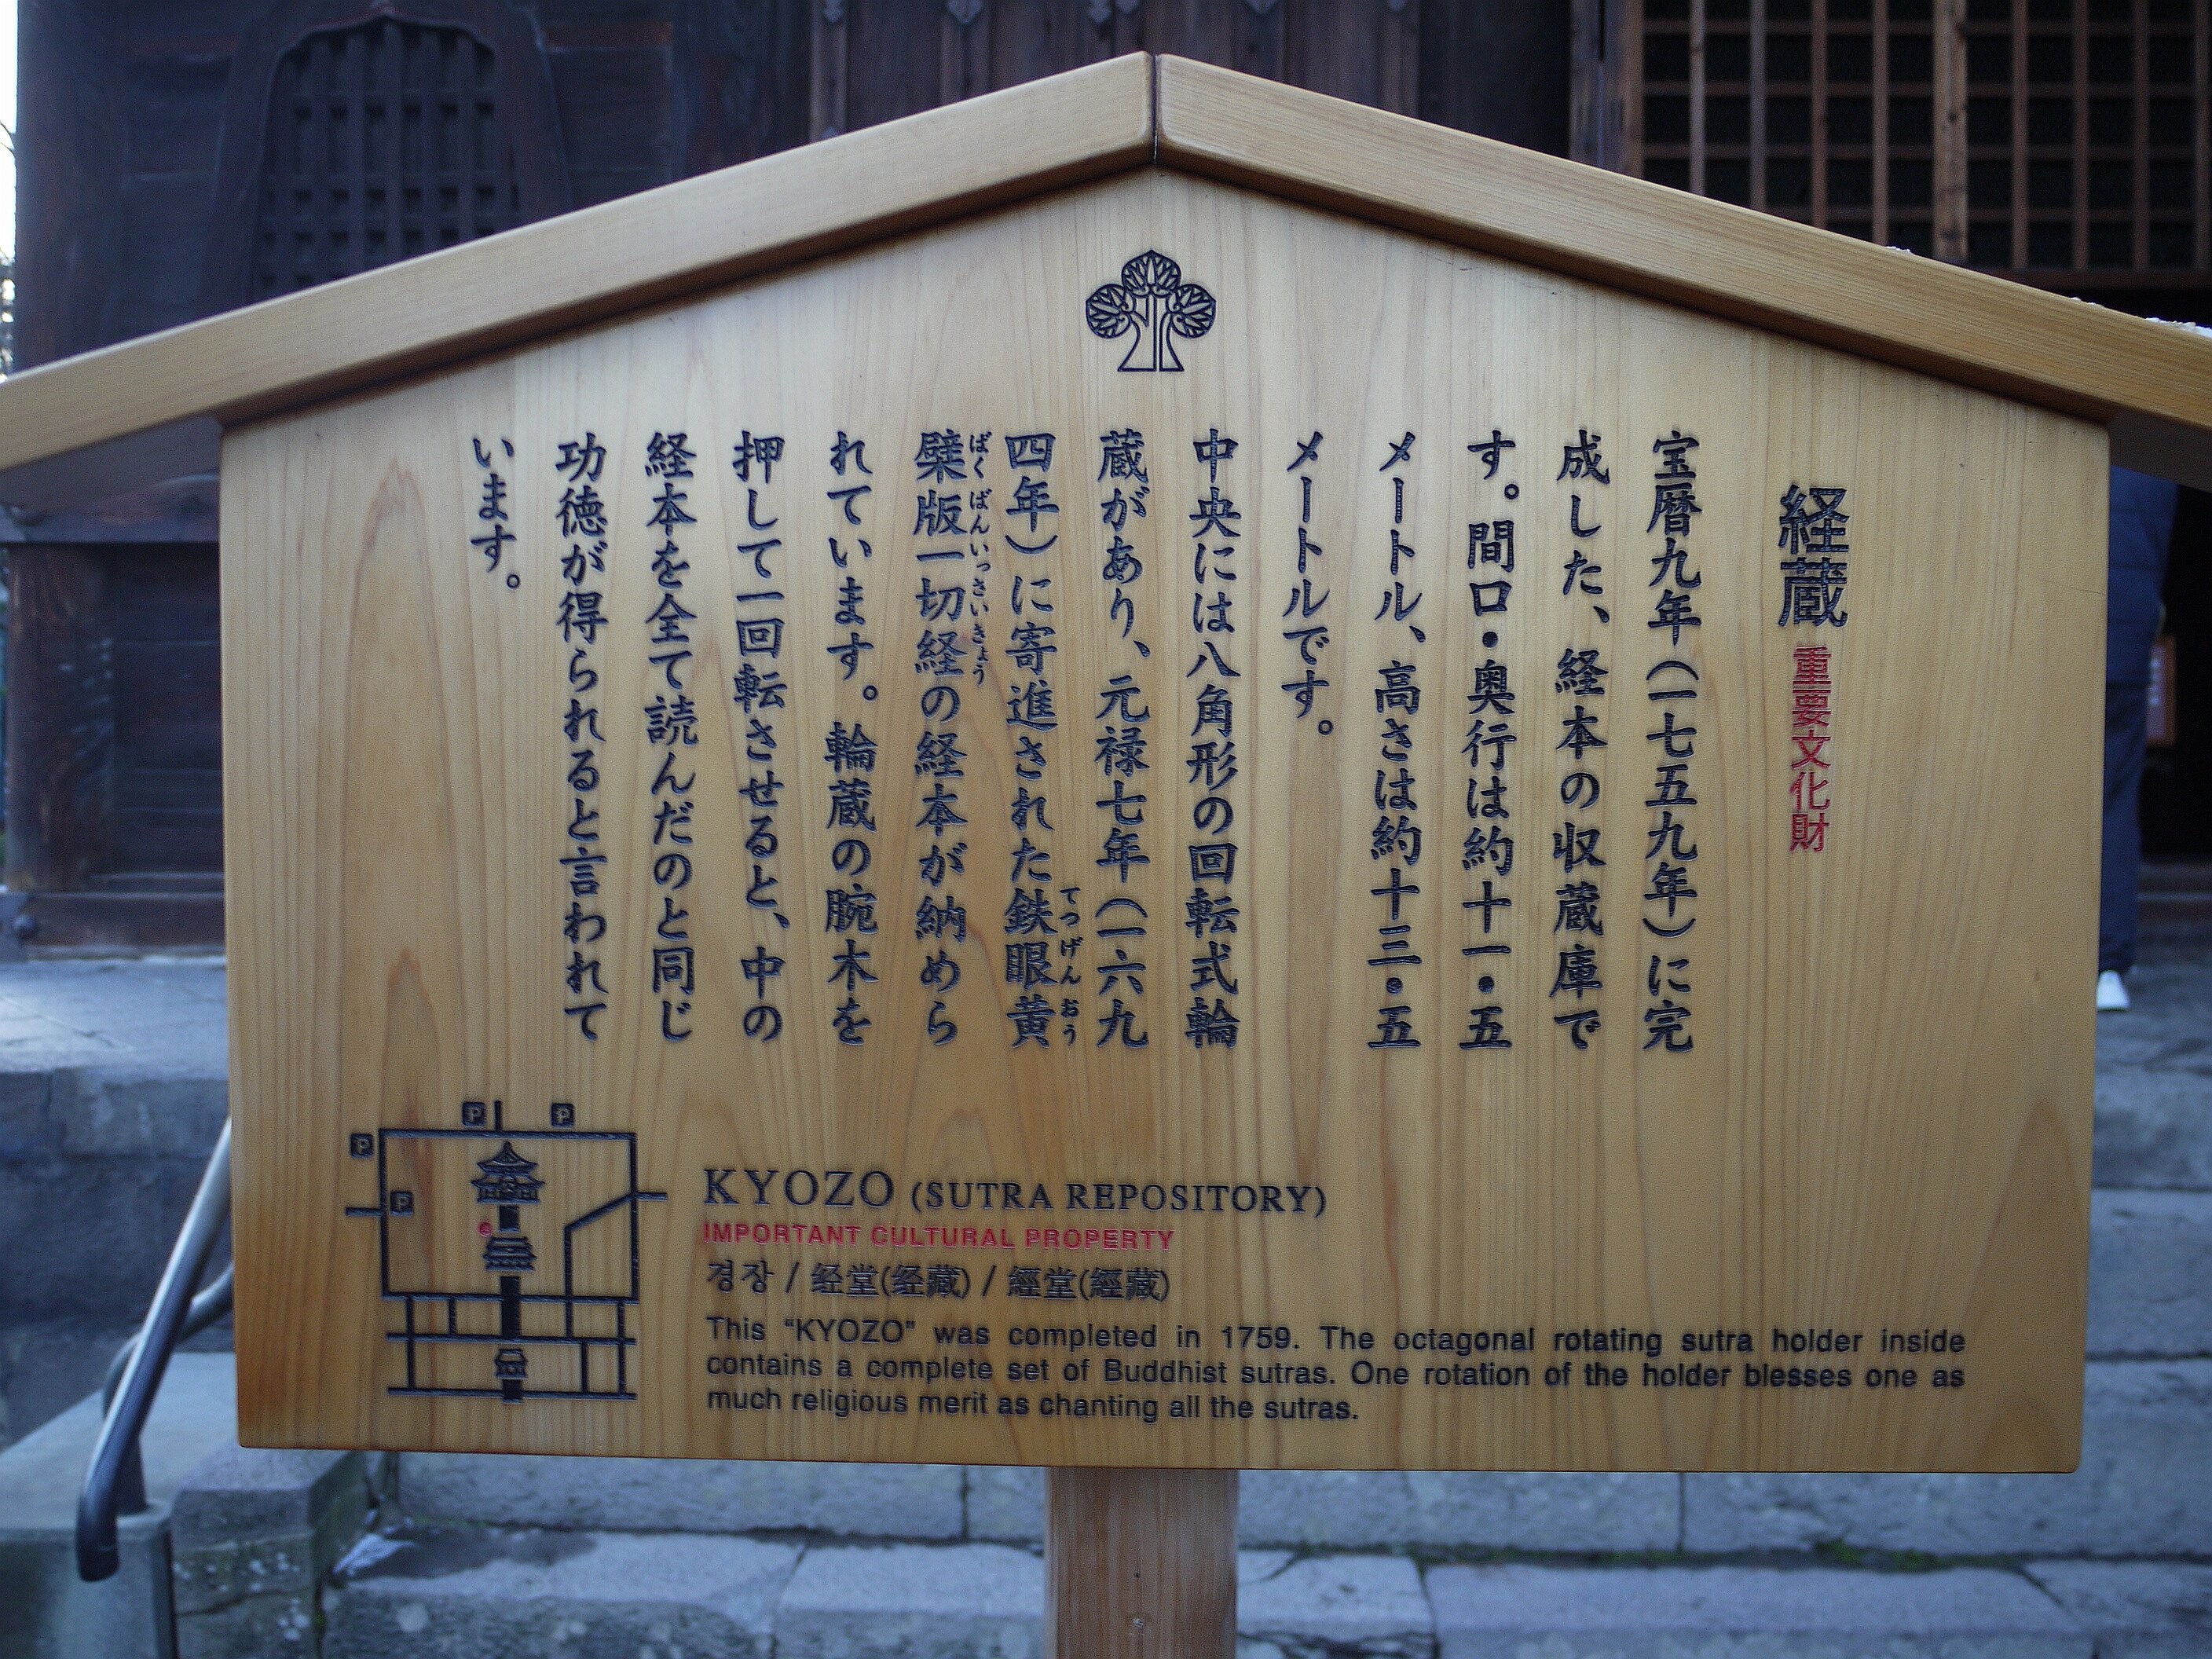 経蔵 重要文化財
宝暦九年(一七五九年)に完
成した、経本の収蔵庫で
す。間口・奥行は約十一・五
メートル、高さは約十三・五
メートルです。
中央には八角形の回転式輪
蔵があり、元禄七年(一六九
四年)に寄進された鉄眼黄
てつげん おう
檗版一切経の経本が納めら
ばく ばんいっさいきょう
れています。輪蔵の腕木を
押して一回転させると、中の
経本を全て読んだのと同じ
功徳が得られると言われて
います。
P
P
P
P
KYOZO (SUTRA REPOSITORY)
IMPORTANT CULTURAL PROPERTY
경장 / 经堂(经藏) / 經堂(經藏)
This “KYOZO” was completed in 1759. The octagonal rotating sutra holder inside
contains a complete set of Buddhist sutras. One rotation of the holder blesses one as
much religious merit as chanting all the sutras.